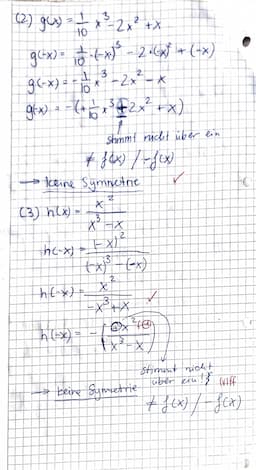 (2) g(x) = 1/10 x³ - 2x² + x
g(-x) = 1/10 · (-x)³ - 2·(-x)² + (-x)
g(-x) = - 1/10 x³ - 2x² - x
g(-x) = -(+ 1/10 x³ + 2x² + x)
stimmt nicht über ein
≠ f(x) / -f(x)
→ keine Symmetrie ✓
(3) h(x) = x² / (x³ - x)
h(-x) = (-x)² / ((-x)³ - (-x))
h(-x) = x² / (-x³ + x) ✓
h(-x) = - ( x² / (x³ - x) )
stimmt nicht
über ein!
→ keine Symmetrie
≠ f(x) / -f(x)